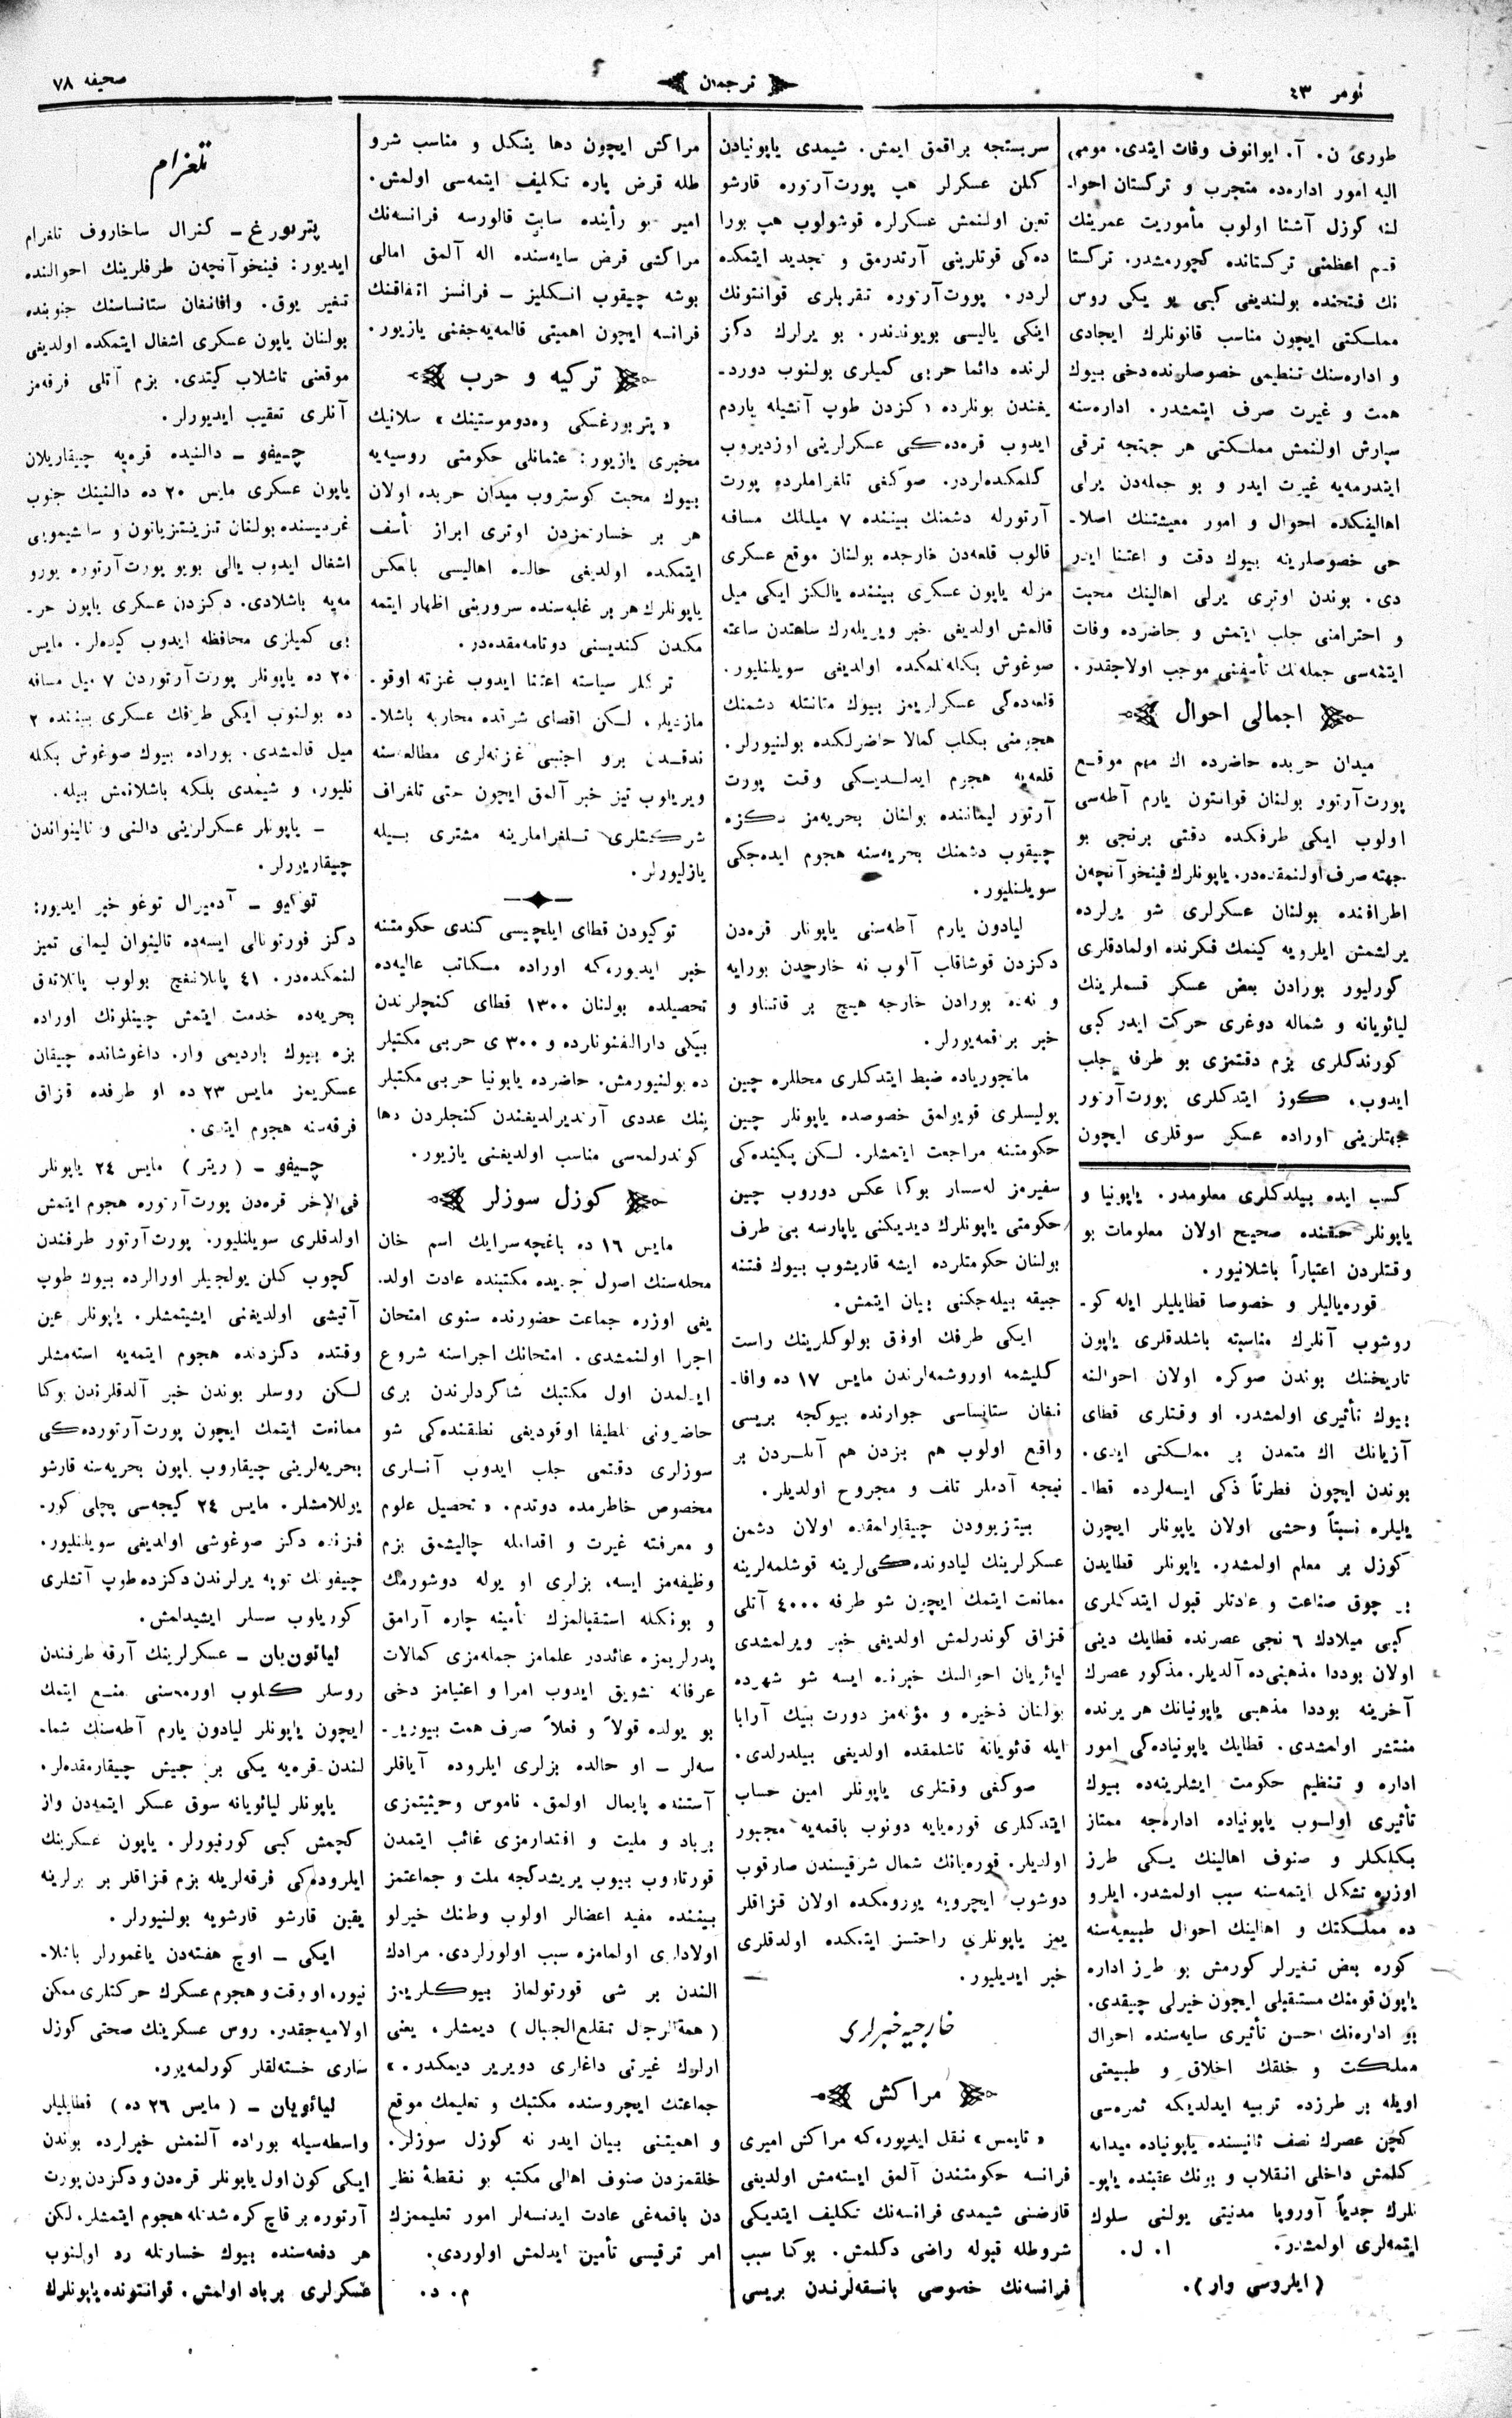 نومر ٤٣
ترجمان
صحیفه ٧٨
طوری ن. آ. ایوانوف وفات ایتدی. مومی
الیه امور اداره‌ده متجرب و ترکستان احوا-
لنه کوزل آشنا اولوب مأموریت عمرینك
قسم اعظمنی ترکستانده کچورمشدر. ترکستا
نك فتحنده بولندیغی کبی بو یکی روس
مملکتی ایچون مناسب قانونلرك ایجادی
و اداره‌سنك تنظیمی خصوصلرنده دخی بیوك
همت و غیرت صرف ایتمشدر. اداره‌سنه
سپارش اولنمش مملکتی هر جهتجه ترقی
ایتدرمه‌یه غیرت ایدر و بو جمله‌دن یرلی
اهالیفکده احوال و امور معیشتنك اصلا-
حی خصوصلرینه بیوك دقت و اعتنا ایدر
دی. بوندن اوتری یرلی اهالینك محبت
و احترامنی جلب ایتمش و حاضرده وفات
ایتمه‌سی جمله‌نك تأسفنی موجب اولاجقدر.
اجمالی احوال
میدان حربده حاضرده اك مهم موقع
پورت‌آرتور بولنان قوانتون یارم آطه‌سی
اولوب ایکی طرفکده دقتی برنجی بو
جهته صرف اولنمقده‌در. یاپونلرك فینخوآنچه‌ن
اطرافنده بولنان عسکرلری شو یرلرده
یرلشمش ایلرویه کیتمك فکرنده اولمادقلری
کورلیور بورادن بعض عسکر قسملرینك
لیائویانه و شماله دوغری حرکت ایدر کبی
کورندکلری بزم دقتمزی بو طرفه جلب
ایدوب، کوز ایتدکلری پورت‌آرتور
جهتلرینی اوراده عسکر سوقلری ایچون
کسب ایده بیلدکلری معلومدر. یاپونیا و
یاپونلر حقنده صحیح اولان معلومات بو
وقتلردن اعتباراً باشلانیور.
قوره‌یالیلر و خصوصا قطایلیلر ایله کو-
روشوب آنلرك مناسبته باشلدقلری یاپون
تاریخنك بوندن صوکره اولان احوالنه
بیوك تأثیری اولمشدر. او وقتلری قطای
آزیانك اك متمدن بر مملکتی ایدی.
بوندن ایچون فطرتاً ذکی ایسه‌لرده قطا-
یلیلره نسبتاً وحشی اولان یاپونلر ایچون
کوزل بر معلم اولمشدر. یاپونلر قطایدن
بر چوق صناعت و عادتلر قبول ایتدکلری
کبی میلادك ٦ نجی عصرنده قطایك دینی
اولان بوددا مذهبنی‌ده آلدیلر. مذکور عصرك
آخرینه بوددا مذهبی یاپونیانك هر یرنده
منتشر اولمشدی. قطایك یاپونیاده‌کی امور
اداره و تنظیم حکومت ایشلرینه‌ده بیوك
تأثیری اولوب یاپونیاده اداره‌جه ممتاز
بکلکلر و صنوف اهالینك یکی طرز
اوزره تشکل ایتمه‌سنه سبب اولمشدر. ایلرو
ده مملکتك و اهالینك احوال طبیعیه‌سنه
کوره بعض تغیرلر کورمش بو طرز اداره
یاپون قومنك مستقبلی ایچون خیرلی چیقدی.
بو اداره‌نك احسن تأثیری سایه‌سنده احوال
مملکت و خلقك اخلاق و طبیعتی
اویله بر طرزده تربیه ایدلدیکه ثمره‌سی
کچن عصرك نصف ثانیسنده یاپونیاده میدانه
کلمش داخلی انقلاب و بونك عقبنده یاپو-
نلرك جدیاً آوروپا مدنیتی یولنی سلوك
ایتمه‌لری اولمشدر. ا. ل.
(ایلروسی وار).
سربستجه براقمق ایمش. شیمدی یاپونیادن
کلن عسکرلر هپ پورت‌آرتوره قارشو
تعین اولنمش عسکرلره قوشولوب هپ بورا
ده‌کی قوتلرینی آرتدرمق و تجدید ایتمکده
لردر. پورت‌آرتوره تقربلری قوانتونك
اینکی یالیسی بویوندندر. بو یرلرك دکز
لرنده دائما حربی کمیلری بولنوب دورد-
یغندن بونلرده دکزدن طوپ آتشیله یاردم
ایدوب قره‌ده‌کی عسکرلرینی اوزدیروب
کلمکده‌لردر. صوکغی تلغراملرده پورت
آرتورله دشمنك بیننده ٧ میللك مسافه
قالوب قلعه‌دن خارجده بولنان موقع عسکری
مزله یاپون عسکری بیننده یالکز ایکی میل
قالمش اولدیغی خبر ویریله‌رك ساعتدن ساعته
صوغوش بکله‌نلمکده اولدیغی سویلنلیور.
قلعه‌ده‌کی عسکرلریمز بیوك متانتله دشمنك
هجومنی بکلب کمالا حاضرلکده بولنیورلر.
قلعه‌یه هجوم ایدلدیکی وقت پورت
آرتور لیماننده بولنان بحریه‌مز دکزه
چیقوب دشمنك بحریه‌سنه هجوم ایده‌جکی
سویلنلیور.
لیادون یارم آطه‌سنی یاپونلر قره‌دن
دکزدن قوشاقلب آلوب نه خارجدن بورایه
و نه‌ده بورادن خارجه هیچ بر قاتناو و
خبر برقمه‌یورلر.
مانجوریاده ضبط ایتدکلری محللره چین
پولیسلری قویولمق خصوصده یاپونلر چین
حکومتنه مراجعت ایتمشلر. لکن پکینده‌کی
سفیرمز له‌سسار بوکا عکس دوروب چین
حکومتی یاپونلرك دیدیکنی یاپارسه بی طرف
بولنان حکومتلرده ایشه قاریشوب بیوك فتنه
چیقه بیله‌جکنی بیان ایتمش.
ایکی طرفك اوفق بولوکلرینك راست
کلیشمه اوروشمه‌لرندن مایس ١٧ ده وافا-
نفان ستانساسی جوارنده بیوکجه بریسی
واقع اولوب هم بزدن هم آنلردن بر
نیجه آدملر تلف و مجروح اولدیلر.
بیتزبوودن چیقارلمقده اولان دشمن
عسکرلرینك لیادونده‌کی‌لرینه قوشلمه‌لرینه
ممانعت ایتمك ایچون شو طرفه ٤٠٠٠ آتلی
قزاق کوندرلمش اولدیغی خبر ویرلمشدی
لیائویان احوالنك خبرنده ایسه شو شهرده
بولنان ذخیره و مؤنه‌مز دورت بیك آرابا
ایله قائویانه تاشلمقده اولدیغی بیلدرلدی.
صوکغی وقتلری یاپونلر امین حساب
ایتدکلری قوره‌یایه دونوب باقمه‌یه مجبور
اولدیلر. قوره‌یانك شمال شرقیسندن صارقوب
دوشوب ایچرویه یورومکده اولان قزاقلر
یمز یاپونلری راحتسز ایتمکده اولدقلری
خبر ایدیلیور.
خارجیه خبرلری
مراکش
«تایمس» نقل ایدیورکه مراکش امیری
فرانسه حکومتندن آلمق ایسته‌مش اولدیغی
قارضنی شیمدی فرانسه‌نك تکلیف ایتدیکی
شروطله قبوله راضی دکلمش. بوکا سبب
فرانسه‌نك خصوصی بانسقه‌لرندن بریسی
مراکش ایچون دها ینکل و مناسب شرو
طله قرض پاره تکلیف ایتمه‌سی اولمش.
امیر بو رأینده سابت قالورسه فرانسه‌نك
مراکشی قرض سایه‌سنده اله آلمق امالی
بوشه چیقوب انکلیز - فرانسز اتفاقنك
فرانسه ایچون اهمیتی قالمه‌یه‌جغنی یازیور.
ترکیه و حرب
«پتربورغسکی وه‌دوموستینك» سلانیك
مخبری یازیور: عثمانلی حکومتی روسیه‌یه
بیوك محبت کوستروب میدان حربده اولان
هر بر خسارتمزدن اوتری ابراز تأسف
ایتمکده اولدیغی حالده اهالیسی بالعکس
یاپونلرك هر بر غلبه‌سنده سرورینی اظهار ایتمه
مکدن کندیسنی دوتامه‌مقده‌در.
ترکلر سیاسته اعتنا ایدوب غزته اوقو-
مازدیلر، لکن اقصای شرقده محاربه باشلا-
ندقدن برو اجنبی غزته‌لری مطالعه‌سنه
ویریلوب تیز خبر آلمق ایچون حتی تلغراف
شرکتلری تلغرامارینه مشتری بیله
یازلیورلر.
توکیودن قطای ایلچیسی کندی حکومتنه
خبر ایدیورکه اوراده مکاتب عالیه‌ده
تحصیلده بولنان ١٣٠٠ قطای کنچلرندن
بیکی دارالفنونارده و ٣٠٠ ی حربی مکتبلر
ده بولنیورمش. حاضرده یاپونیا حربی مکتبلر
ینك عددی آرتدیرلدیغندن کنجلردن دها
کوندرلمه‌سی مناسب اولدیغنی یازیور.
کوزل سوزلر
مایس ١٦ ده باغچه‌سرایك اسم خان
محله‌سنك اصول جدیده مکتبنده عادت اولد-
یغی اوزره جماعت حضورنده سنوی امتحان
اجرا اولنمشدی. امتحانك اجراسنه شروع
ایدلمدن اول مکتبك شاکردلرندن بری
حاضرونی تلطیفا اوقودیغی نطقنده‌کی شو
سوزلری دقتمی جلب ایدوب آنلری
مخصوص خاطرمده دوتدم. «تحصیل علوم
و معرفته غیرت و اقدامله چالیشمق بزم
وظیفه‌مز ایسه، بزلری او یوله دوشورمك
و بونکله استقبالمزك تأمینه چاره آرامق
پدرلریمزه عائددر علمامز جمله‌مزی کمالات
عرفانه تشویق ایدوب امرا و اغنیامز دخی
بو یولده قولاً و فعلاً صرف همت بیوریر-
سه‌لر - او حالده بزلری ایلروده آیاقلر
آستنده پایمال اولمق، ناموس وحیثیتمزی
برباد و ملیت و اقتدارمزی غائب ایتمدن
قورتاروب بیوب یریشدکجه ملت و جماعتمز
بیننده مفید اعضالر اولوب وطنك خیرلو
اولادلری اولمامزه سبب اولورلردی. مرادك
الندن بر شی قورتولماز بیوکلریمز
(همة الرجال تقلع الجبال) دیمشلر، یعنی
ارلرك غیرتی داغلری دویریر دیمکدر.»
جماعتك ایچروسنده مکتبك و تعلیمك موقع
و اهمیتنی بیان ایدر نه کوزل سوزلر.
خلقمزدن صنوف اهالی مکتبه بو نقطهٔ نظر
دن باقمه‌غی عادت ایدنسه‌لر امور تعلیممزك
امر ترقیسی تأمین ایدلمش اولوردی.
م. د.
تلغرام
پتربورغ - کنرال ساخاروف تلغرام
ایدیور: فینخوآنچه‌ن طرفلرینك احوالنده
تغیر یوق. وافانفان ستانساسنك جنوبنده
بولنان یاپون عسکری اشغال ایتمکده اولدیغی
موقعنی تاشلاب کیتدی. بزم آتلی فرقه‌مز
آنلری تعقیب ایدیورلر.
چیفو - دالنیده قره‌یه چیقاریلان
یاپون عسکری مایس ٢٠ ده دالنینك جنوب
غربیسنده بولنان تزینتزیانون و ساشیموبی
اشغال ایدوب یالی بویو پورت‌آرتوره یورو
مه‌یه باشلادی. دکزدن عسکری یاپون حر-
بی کمیلری محافظه ایدوب کیده‌لر. مایس
٢٠ ده یاپونلر پورت‌آرتوردن ٧ میل مسافه
ده بولنوب ایکی طرفك عسکری بیننده ٢
میل قالمشدی. بوراده بیوك صوغوش بکله
نلیور، و شیمدی بلکه باشلانمش بیله.
- یاپونلر عسکرلرینی دالنی و تالینواندن
چیقاریورلر.
توکیو - آدمیرال توغو خبر ایدیور:
دکز فورتونالی ایسه‌ده تالینوان لیمانی تمیز
لنمکده‌در. ٤١ پاتلانغچ بولوب پاتلاتدق
بحریه‌ده خدمت ایتمش چینلونك اوراده
بزه بیوك یاردیمی وار. داغوشانده چیقان
عسکریمز مایس ٢٣ ده او طرفده قزاق
فرقه‌سنه هجوم ایتدی.
چیفو - (ریتر) مایس ٢٤ یاپونلر
فی الاخر قره‌دن پورت‌آرتوره هجوم ایتمش
اولدقلری سویلنلیور. پورت‌آرتور طرفندن
کچوب کلن یولجیلر اورالرده بیوك طوپ
آتیشی اولدیغنی ایشیتمشلر. یاپونلر عین
وقتده دکزدنده هجوم ایتمه‌یه استه‌مشلر
لکن روسلر بوندن خبر آلدقلرندن بوکا
ممانعت ایتمك ایچون پورت‌آرتورده‌کی
بحریه‌لرینی چیقاروب یاپون بحریه‌سنه قارشو
یوللامشلر. مایس ٢٤ کیجه‌سی پچلی کور-
فزنده دکز صوغوشی اولدیغی سویلنلیور.
چیفونك توپه یرلرندن دکزده طوپ آتشلری
کوریلوب سسلر ایشیدلمش.
لیائون‌یان - عسکرلرینك آرقه طرفندن
روسلر کلوب اورمه‌سنی منع ایتمك
ایچون یاپونلر لیادون یارم آطه‌سنك شما-
لندن قره‌یه یکی بر جیش چیقارمقده‌لر.
یاپونلر لیائویانه سوق عسکر ایتمه‌دن واز
کچمش کبی کورنیورلر. یاپون عسکرینك
ایلروده‌کی فرقه‌لریله بزم قزاقلر بر برلرینه
یقین قارشو قارشویه بولنیورلر.
ایکی - اوچ هفته‌دن یاغمورلر باشلا-
نیور، او وقت و هجوم عسکرك حرکتلری ممکن
اولامیه‌جقدر. روس عسکرینك صحتی کوزل
ساری خسته‌لقلر کورلمه‌یور.
لیائویان - (مایس ٢٦ ده) قطایلیلر
واسطه‌سیله بوراده آلنمش خبرلرده بوندن
ایکی کون اول یاپونلر قره‌دن و دکزدن پورت
آرتوره بر قاچ کره شدتله هجوم ایتمشلر، لکن
هر دفعه‌سنده بیوك خسارتله رد اولنوب
عسکرلری برباد اولمش. قوانتونده یاپونلرك